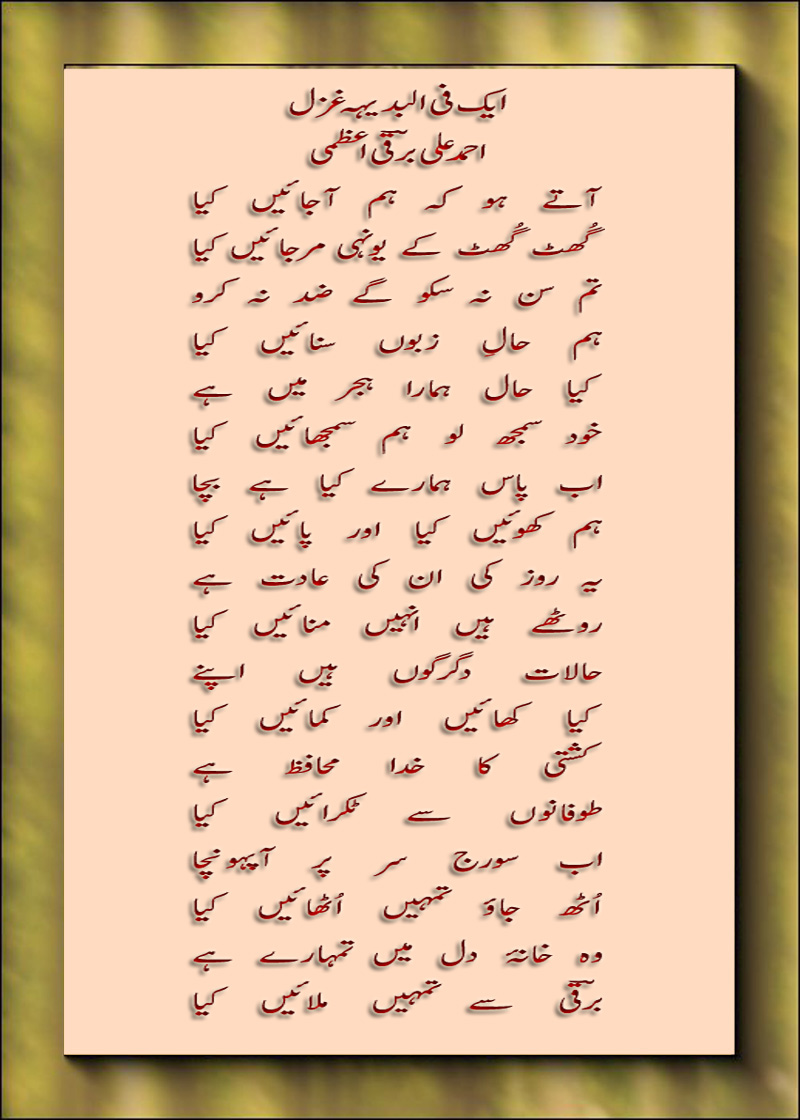 ایک فی البدیہہ غزل
احمد علی برقیؔ اعظمی
آتے ہو کہ ہم آجائیں کیا
گُھٹ گُھٹ کے یونہی مرجائیں کیا
تم سن نہ سکو گے ضد نہ کرو
ہم حالِ زبوں سنائیں کیا
کیا حال ہمارا ہجر میں ہے
خود سمجھ لو ہم سمجھائیں کیا
اب پاس ہمارے کیا ہے بچا
ہم کھوئیں کیا اور پائیں کیا
یہ روز کی ان کی عادت ہے
روٹھے ہیں انہیں منائیں کیا
حالات دگرگوں ہیں اپنے
کیا کھائیں اور کمائیں کیا
کشتی کا خدا محافظ ہے
طوفانوں سے ٹکرائیں کیا
اب سورج سر پر آپہونچا
اُٹھ جاؤ تمہیں اُٹھائیں کیا
وہ خانۂ دل میں تمہارے ہے
برقیؔ سے تمہیں ملائیں کیا